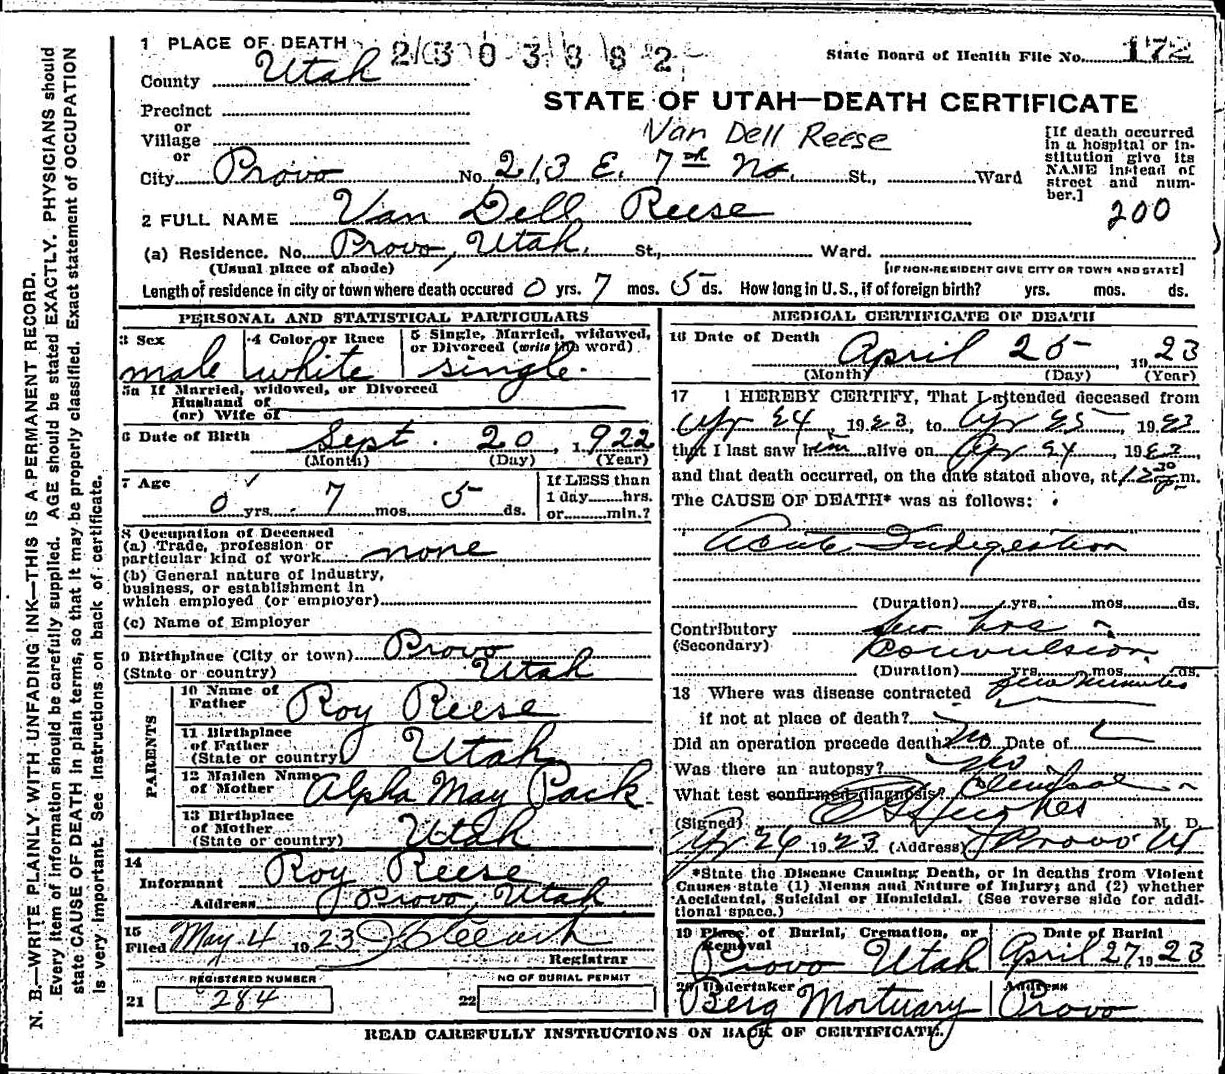 1 PLACE OF DEATH 2303382 State Board of Health File No. 172
County Utah
STATE OF UTAH—DEATH CERTIFICATE
Precinct
or
Village
or
Van Dell Reese
City Provo No. 213 E. 7th No. St., Ward
[If death occurred
in a hospital or in-
stitution give its
NAME instead of
street and num-
ber.]
200
2 FULL NAME Van Dell Reese
(a) Residence. No. Provo, Utah. St., Ward.
(Usual place of abode) [IF NON-RESIDENT GIVE CITY OR TOWN AND STATE]
Length of residence in city or town where death occured 0 yrs. 7 mos. 5 ds. How long in U.S., if of foreign birth? yrs. mos. ds.
PERSONAL AND STATISTICAL PARTICULARS
3 Sex 4 Color or Race 5 Single, Married, widowed,
or Divorced (write the word)
male white single.
5a If Married, widowed, or Divorced
Husband of
(or) Wife of
6 Date of Birth Sept. 20, 1922
(Month) (Day) (Year)
7 Age 0 yrs. 7 mos. 5 ds.
If LESS than
1 day hrs.
or min.?
8 Occupation of Deceased
(a) Trade, profession or
particular kind of work none
(b) General nature of Industry,
business, or establishment in
which employed (or employer)
(c) Name of Employer
9 Birthplace (City or town) Provo
(State or country) Utah
PARENTS
10 Name of
Father Roy Reese
11 Birthplace
of Father
(State or country) Utah
12 Maiden Name
of Mother Alpha May Pack
13 Birthplace
of Mother
(State or country) Utah
14
Informant Roy Reese
Address Provo, Utah
15
Filed May 4 1923
Registrar
REGISTERED NUMBER NO OF BURIAL PERMIT
21 284 22
MEDICAL CERTIFICATE OF DEATH
16 Date of Death April 25 1923
(Month) (Day) (Year)
17 I HEREBY CERTIFY, That I attended deceased from
Apr 24, 1923, to Apr 25, 1923
that I last saw him alive on Apr 24, 1923,
and that death occurred, on the date stated above, at m.
The CAUSE OF DEATH* was as follows:
Acute Indigestion
(Duration) yrs. mos. ds.
few hrs
Contributory
(Secondary) Convulsion
(Duration) yrs. mos. ds.
few minutes
18 Where was disease contracted
if not at place of death?
Did an operation precede death? No Date of
Was there an autopsy? No
What test confirmed diagnosis? Clinical
(Signed) Hughes M. D.
Apr 26 1923 (Address) Provo Ut
*State the Disease Causing Death, or in deaths from Violent
Causes state (1) Means and Nature of Injury; and (2) whether
Accidental, Suicidal or Homicidal. (See reverse side for addi-
tional space.)
19 Place of Burial, Cremation, or
Removal Date of Burial
Provo Utah April 27 1923
20 Undertaker Address
Berg Mortuary Provo
READ CAREFULLY INSTRUCTIONS ON BACK OF CERTIFICATE.
N. B.—WRITE PLAINLY WITH UNFADING INK—THIS IS A PERMANENT RECORD.
Every item of information should be carefully supplied. AGE should be stated EXACTLY. PHYSICIANS should
state CAUSE OF DEATH in plain terms, so that it may be properly classified. Exact statement of OCCUPATION
is very important. See instructions on back of certificate.